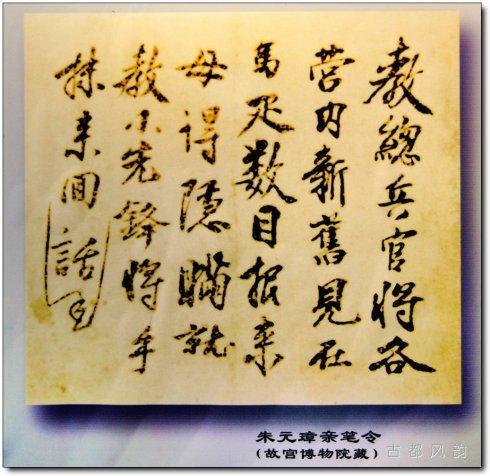 教總兵官將各
营内新舊見在
馬疋数目报来
毋得隐瞒就
教小先鋒將手
抹来囬話
朱元璋亲笔令
（故宫博物院藏）
古都风韵